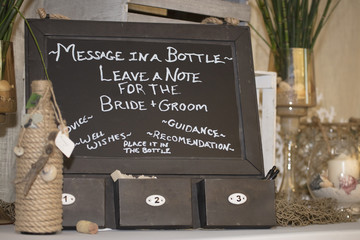 ~MESSAGE IN A BOTTLE~
LEAVE A NOTE
FOR THE
BRIDE + GROOM
~GUIDANCE~
~WELL WISHES~
~RECOMENDATION~
PLACE IT IN
THE BOTTLE
1 2 3